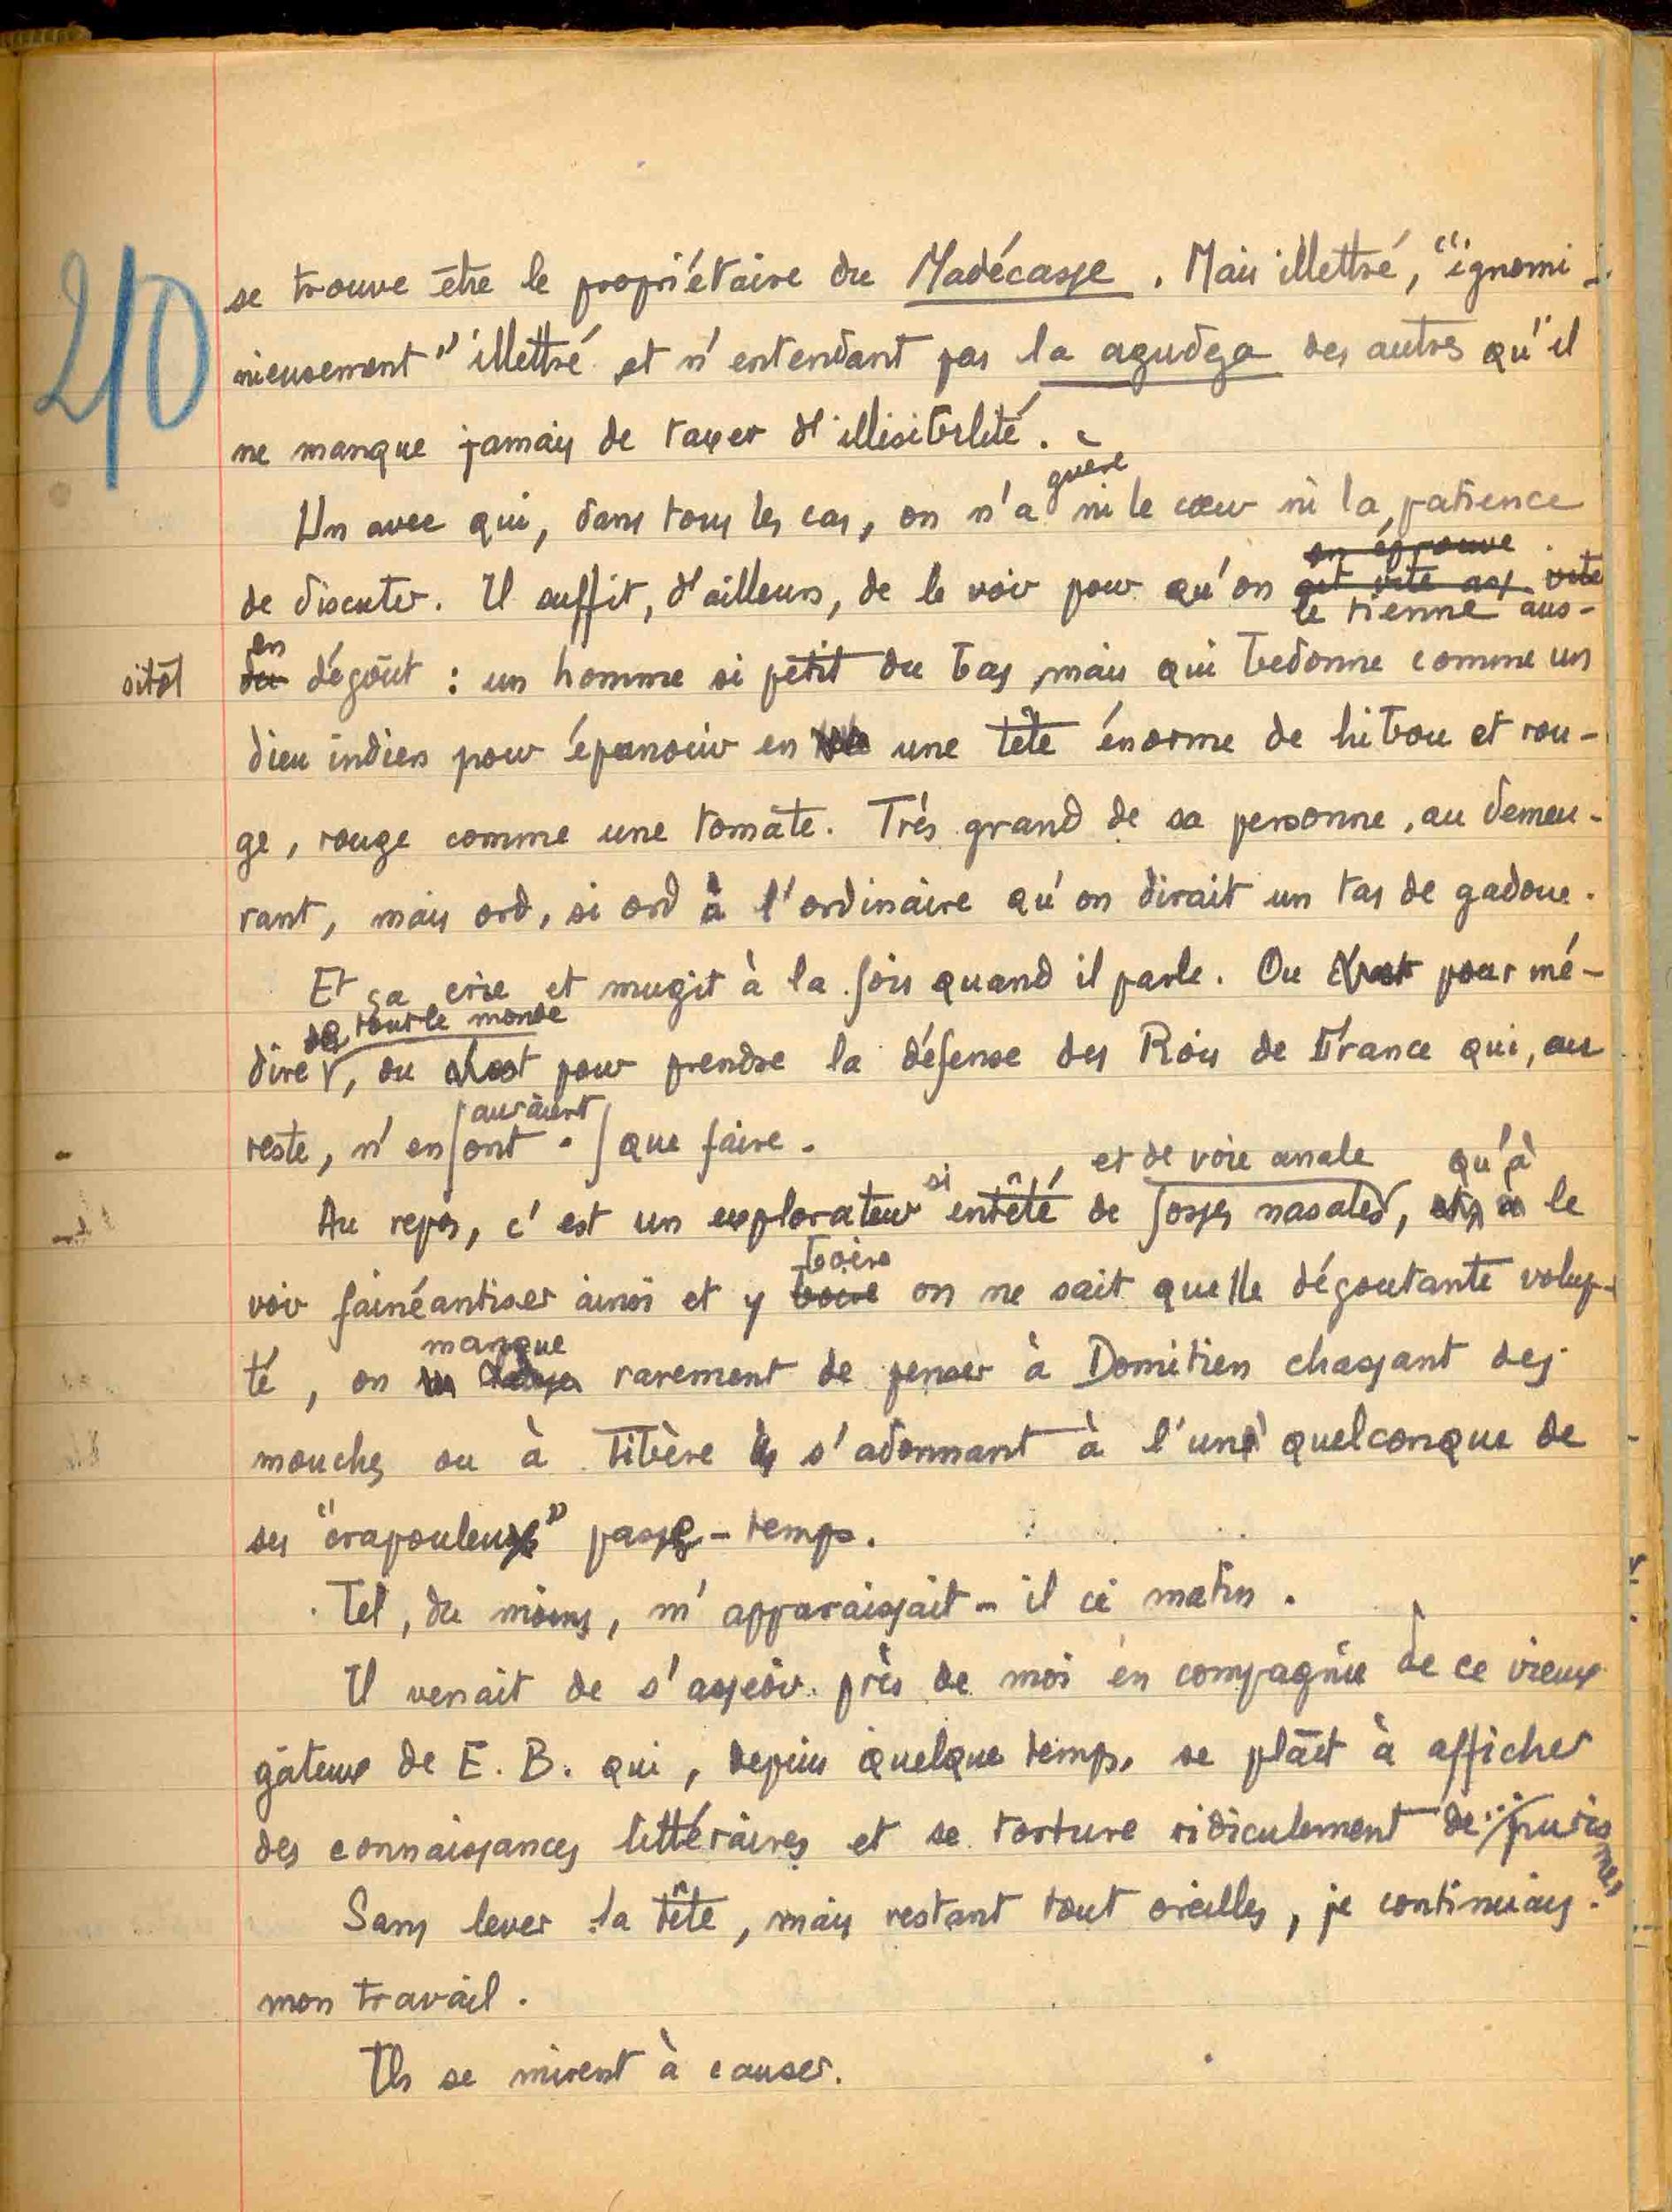 210
se trouve être le propriétaire du Madécasse. Mais illettré, "ignomi-
nieusement" illettré et n'entendant pas la agudeza des autres qu'il
ne manque jamais de taxer d'illisibilité.
guère
Un avec qui, dans tous les cas, on n'a ni le cœur ni la patience
on éprouve
de discuter. Il suffit, d'ailleurs, de le voir pour qu'on ait vite
le tienne aus-
en
sitôt du dégoût : un homme si petit du bas, mais qui bedonne comme un
dieu indien pour épanouir en une tête énorme de hibou et rou-
ge, rouge comme une tomate. Très grand de sa personne, au demeu-
rant, mais ord, si ord à l'ordinaire qu'on dirait un tas de gadoue.
Et ça crie et mugit à la fois quand il parle. Ou c'est pour mé-
de tout le monde
dire, ou c'est pour prendre la défense des Rois de France qui, au
auraient
reste, n'en ont que faire.
si et de voie anale qu'à
Au repos, c'est un explorateur entêté de fosses nasales, à le
boire
voir fainéantiser ainsi et y boire on ne sait quelle dégoutante volup-
manque
té, on rarement de penser à Domitien chassant des
mouches ou à Tibère s'adonnant à l'un quelconque de
ses "crapouleux" passe-temps.
Tel, du moins, m'apparaissait-il ce matin.
Il venait de s'asseoir près de moi en compagnie de ce vieux
gâteux de E. B. qui, depuis quelque temps, se plaît à afficher
des connaissances littéraires et se torture ridiculement de... purismes.
Sans lever la tête, mais restant tout oreilles, je continuais
mon travail.
Ils se mirent à causer.